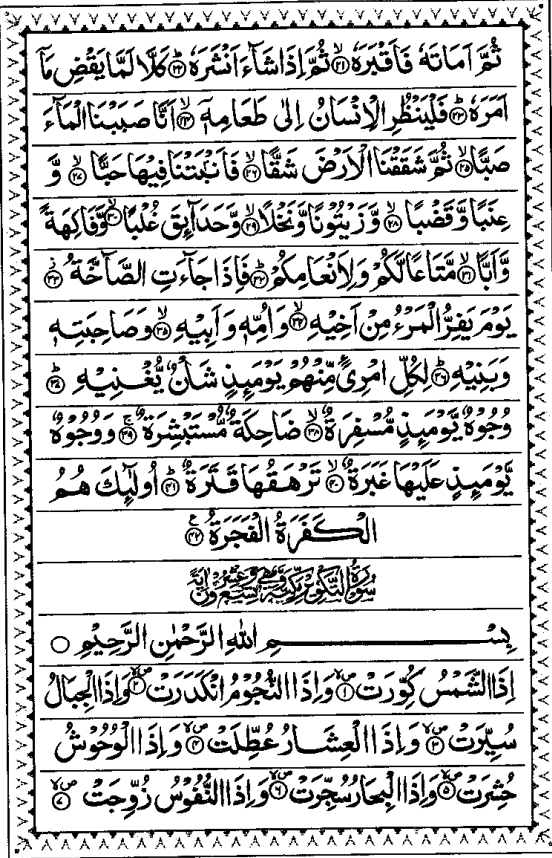 ثُمَّ اَمَاتَهٗ فَاَقْبَرَهٗ ۙ﴿۲۱﴾ ثُمَّ اِذَا شَآءَ اَنْشَرَهٗ ؕ﴿۲۲﴾ كَلَّا لَمَّا يَقْضِ مَاۤ
اَمَرَهٗ ؕ﴿۲۳﴾ فَلْيَنْظُرِ الْاِنْسَانُ اِلٰى طَعَامِهٖۤ ۙ﴿۲۴﴾ اَنَّا صَبَبْنَا الْمَآءَ
صَبًّا ۙ﴿۲۵﴾ ثُمَّ شَقَقْنَا الْاَرْضَ شَقًّا ۙ﴿۲۶﴾ فَاَنْۢبَتْنَا فِيْهَا حَبًّا ۙ﴿۲۷﴾ وَّ
عِنَبًا وَّقَضْبًا ۙ﴿۲۸﴾ وَّزَيْتُوْنًا وَّنَخْلًا ۙ﴿۲۹﴾ وَّحَدَآئِقَ غُلْبًا ۙ﴿۳۰﴾ وَّفَاكِهَةً
وَّاَبًّا ۙ﴿۳۱﴾ مَّتَاعًا لَّكُمْ وَلِاَنْعَامِكُمْ ؕ﴿۳۲﴾ فَاِذَا جَآءَتِ الصَّآخَّةُ ؗ﴿۳۳﴾
يَوْمَ يَفِرُّ الْمَرْءُ مِنْ اَخِيْهِ ۙ﴿۳۴﴾ وَاُمِّهٖ وَاَبِيْهِ ۙ﴿۳۵﴾ وَصَاحِبَتِهٖ
وَبَنِيْهِ ؕ﴿۳۶﴾ لِكُلِّ امْرِئٍ مِّنْهُمْ يَوْمَئِذٍ شَاْنٌ يُّغْنِيْهِ ؕ﴿۳۷﴾
وُجُوْهٌ يَّوْمَئِذٍ مُّسْفِرَةٌ ۙ﴿۳۸﴾ ضَاحِكَةٌ مُّسْتَبْشِرَةٌ ۚ﴿۳۹﴾ وَوُجُوْهٌ
يَّوْمَئِذٍ عَلَيْهَا غَبَرَةٌ ۙ﴿۴۰﴾ تَرْهَقُهَا قَتَرَةٌ ؕ﴿۴۱﴾ اُولٰٓئِكَ هُمُ
الْكَفَرَةُ الْفَجَرَةُ ﴿۴۲﴾ ع
سُوْرَةُ التَّكْوِيْرِ مَكِّيَّةٌ وَّهِيَ تِسْعٌ وَّعِشْرُوْنَ اٰيَةً
بِسْمِ اللّٰهِ الرَّحْمٰنِ الرَّحِيْمِ ○
اِذَا الشَّمْسُ كُوِّرَتْ ۪ۙ﴿۱﴾ وَاِذَا النُّجُوْمُ انْكَدَرَتْ ۪ۙ﴿۲﴾ وَاِذَا الْجِبَالُ
سُيِّرَتْ ۪ۙ﴿۳﴾ وَاِذَا الْعِشَارُ عُطِّلَتْ ۪ۙ﴿۴﴾ وَاِذَا الْوُحُوْشُ
حُشِرَتْ ۪ۙ﴿۵﴾ وَاِذَا الْبِحَارُ سُجِّرَتْ ۪ۙ﴿۶﴾ وَاِذَا النُّفُوْسُ زُوِّجَتْ ۪ۙ﴿۷﴾